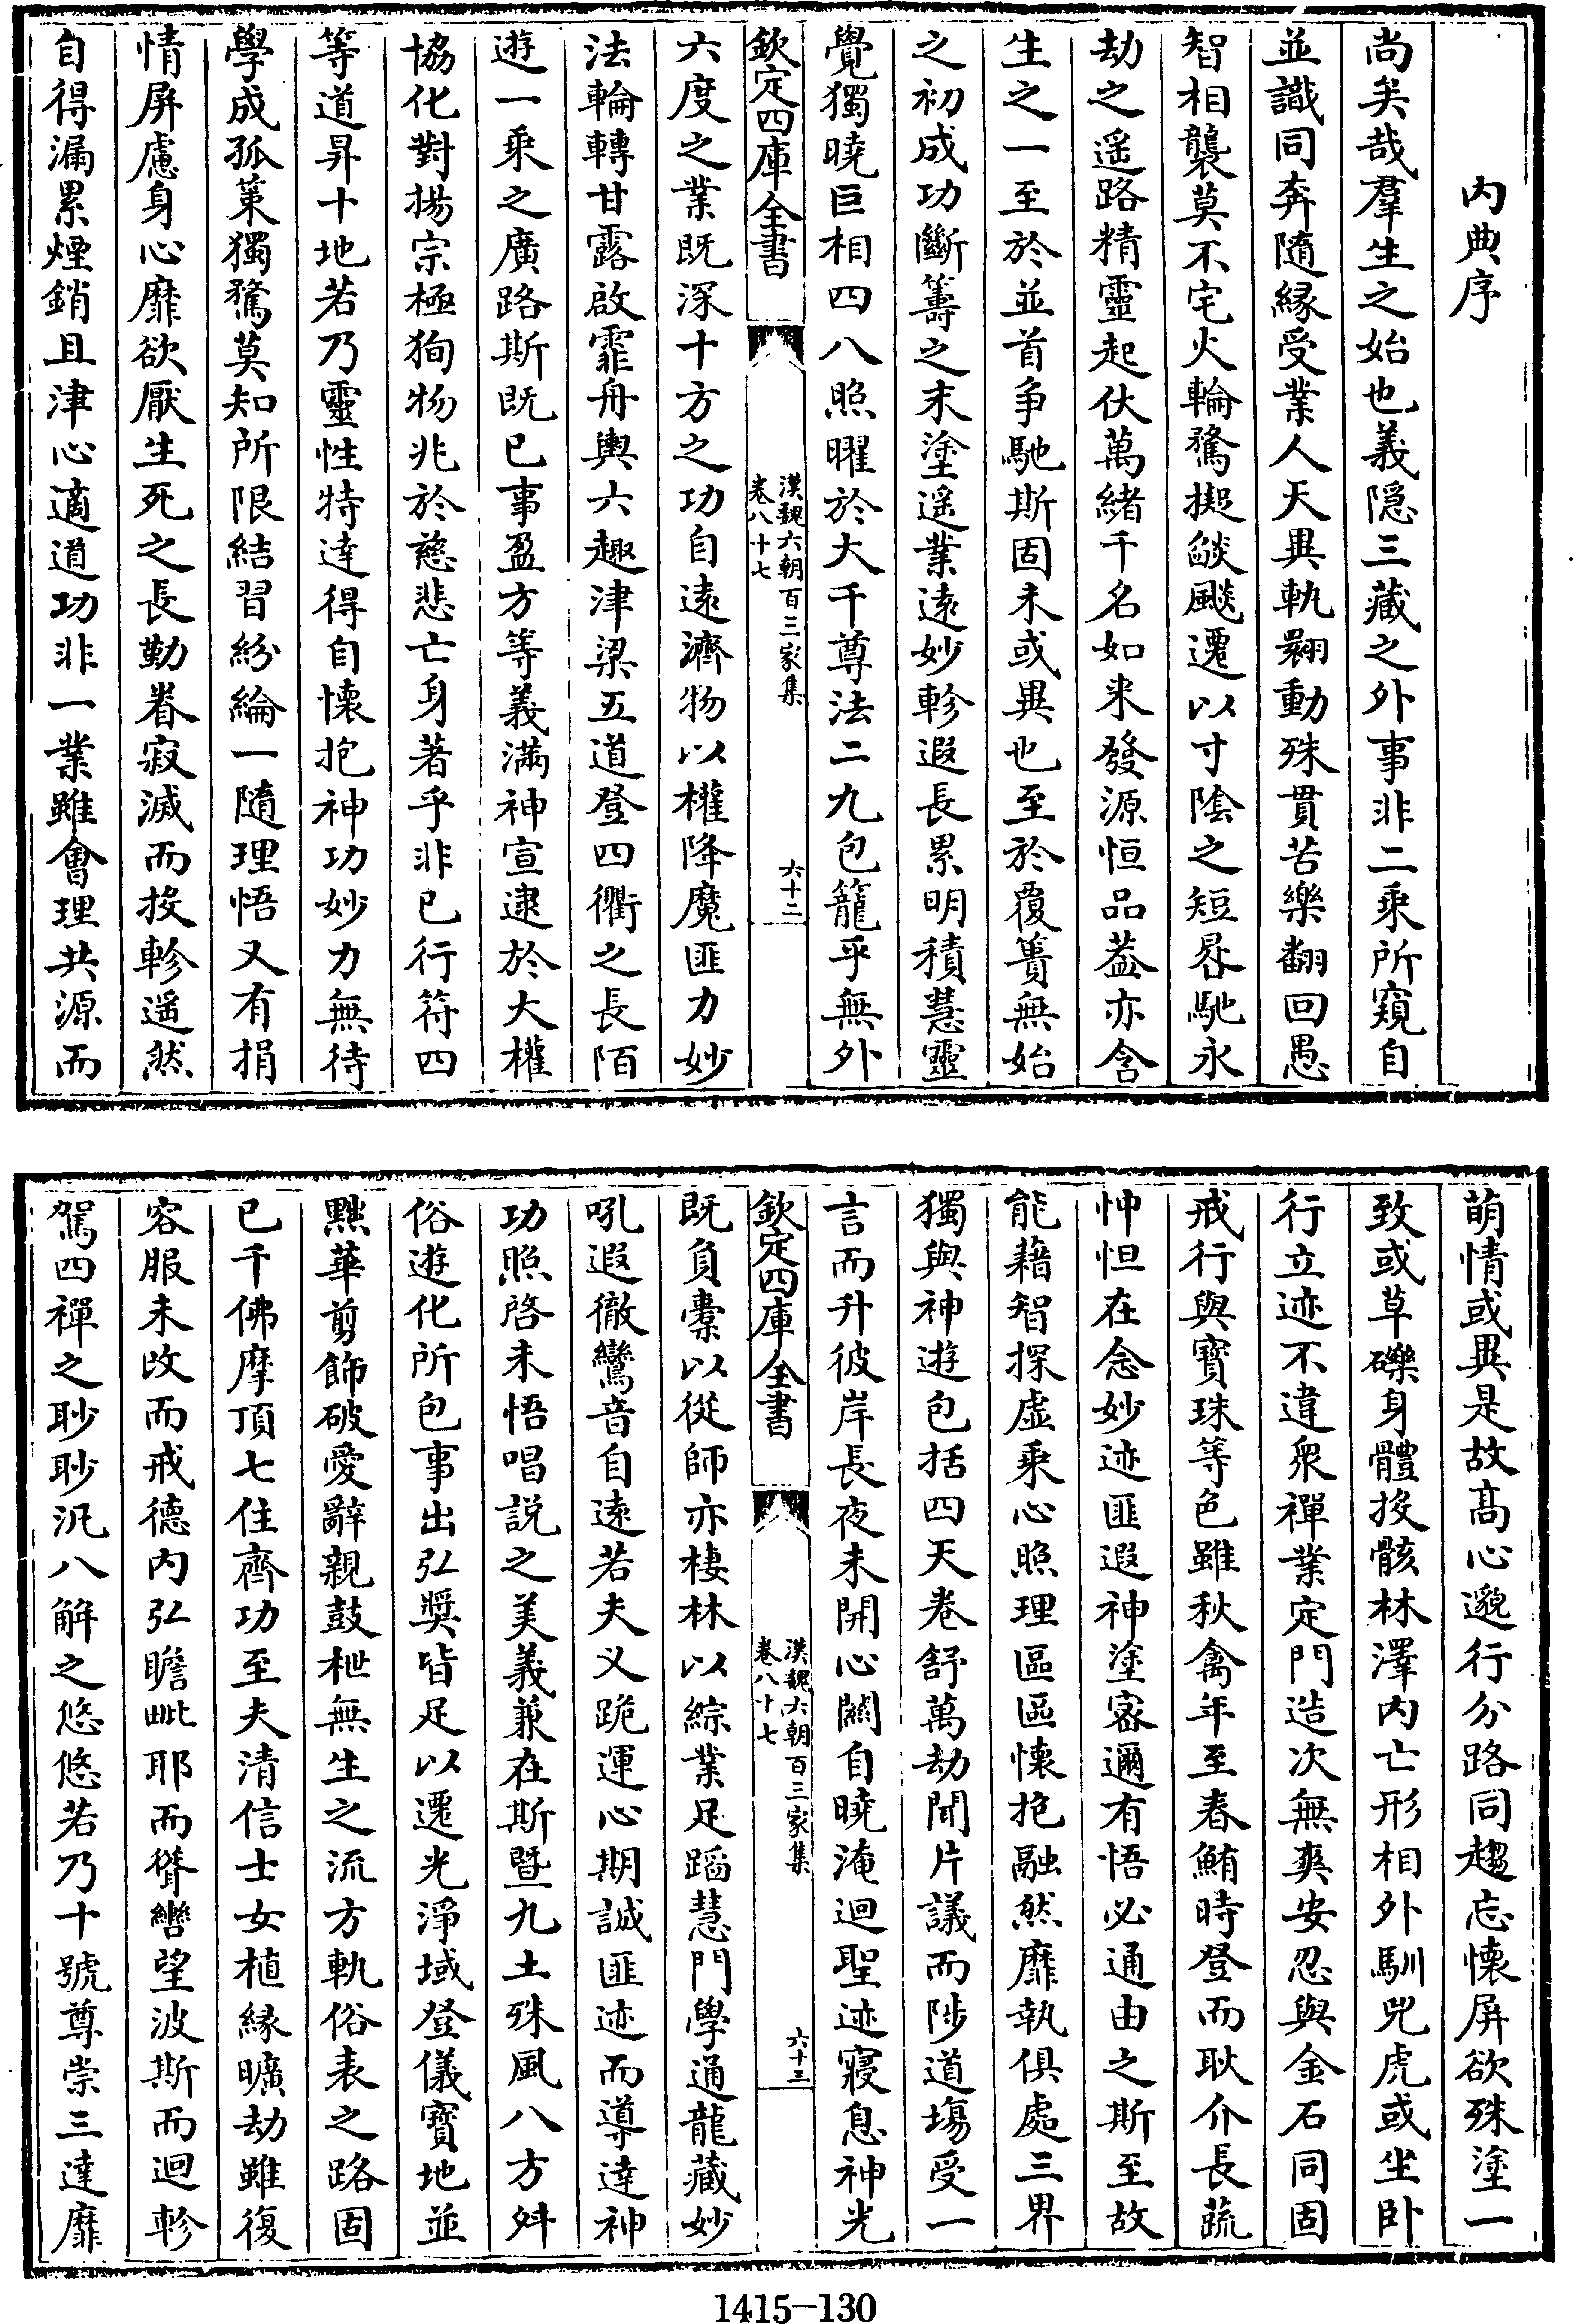 内典序
尚矣哉羣生之始也義隠三藏之外事非二乘所窺自
並識同奔隨縁受業人天異軌翾動殊貫苦樂翻回愚
智相襲莫不宅火輪騖擬燄颷遷以寸陰之短晷馳永
劫之遥路精靈起伏萬緒千名如来發源恒品葢亦含
生之一至於並首争馳斯固未或異也至於覆簣無始
之初成功斷籌之末塗遥業遠妙軫遐長累明積慧靈
覺獨曉巨相四八照曜於大千尊法二九包籠乎無外
欽定四庫全書
漢魏六朝百三家集
卷八十七
六十二
六度之業既深十方之功自遠濟物以權降魔匪力妙
法輪轉甘露啟霏舟輿六趣津梁五道登四衢之長陌
遊一乘之廣路斯既已事盈方等義滿神宣逮於大權
協化對揚宗極狥物兆於慈悲亡身著乎非已行符四
等道昇十地若乃靈性特達得自懷抱神功妙力無待
學成孤策獨騖莫知所限結習紛綸一隨理悟又有捐
情屏慮身心靡欲厭生死之長勤眷寂滅而投軫遥然
自得漏累煙銷且津心適道功非一業雖㑹理共源而
萌情或異是故髙心邈行分路同趨忘懷屏欲殊塗一
致或草礫身體投骸林澤内亡形相外馴兕虎或坐卧
行立迹不違衆禪業定門造次無爽安忍與金石同固
戒行與寳珠等色雖秋禽年至春鮪時登而耿介長蔬
忡怛在念妙迹匪遐神塗密邇有悟必通由之斯至故
能藉智探虚乘心照理區區懷抱融然靡執俱處三界
獨與神遊包括四天卷舒萬劫聞片議而陟道場受一
言而升彼岸長夜未開心關自曉淹迴聖迹寢息神光
欽定四庫全書
漢魏六朝百三家集
卷八十七
六十三
既負橐以從師亦棲林以綜業足蹈慧門學通龍藏妙
吼遐徹鸞音自遠若夫义跪運心期誠匪迹而導達神
功照啓未悟唱説之美義兼在斯暨九土殊風八方舛
俗遊化所包事出弘奬皆足以遷光淨域登儀寳地並
黜華剪飾破愛辭親鼓枻無生之流方軌俗表之路固
已千佛摩頂七住齊功至夫清信士女植縁曠劫雖復
容服未改而戒德内弘瞻毗耶而聳轡望波斯而迴軫
駕四禪之眇眇汎八解之悠悠若乃十號尊崇三達靡
1415—130